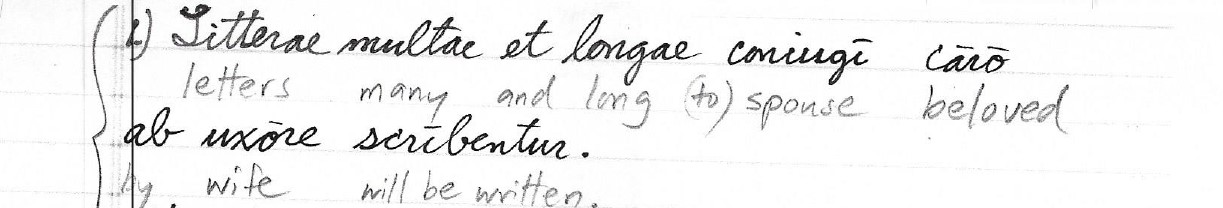 1) Litterae multae et longae coniugī cārō
letters many and long (to) spouse beloved
ab uxōre scrībentur.
by wife will be written.